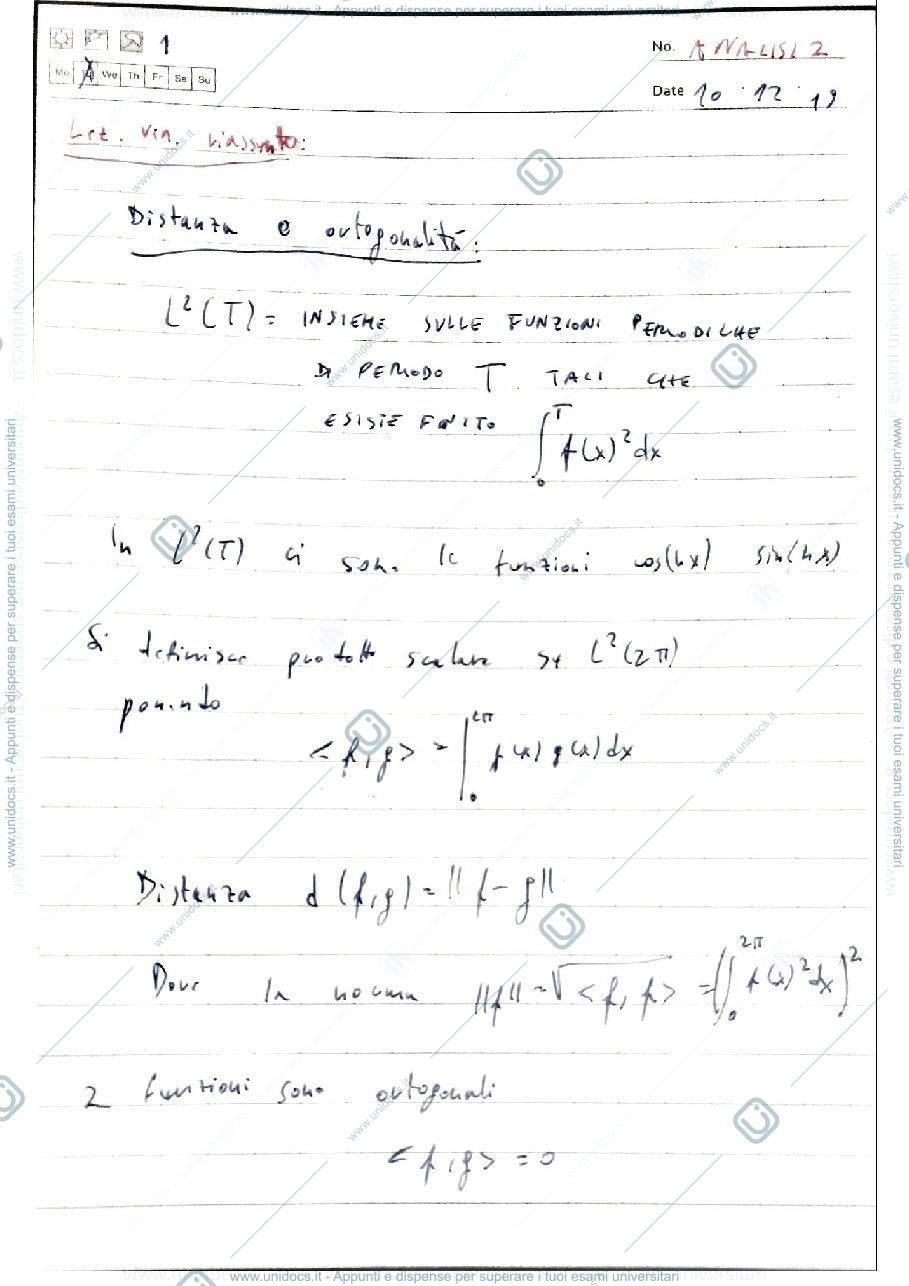 www.unidocs.it - Appunti e dispense per superare i tuoi esami universitari
1
No. ANALISI 2
Mo We Th Fr Sa Su
Date 10 . 12 . 19
Lez. Ven. riassunto:
Distanza e ortogonalità:
L²(T) = INSIEME SULLE FUNZIONI PERIODICHE
DI PERIODO T TALI CHE
ESISTE FINITO ∫₀ᵀ f(x)² dx
In L²(T) ci sono le funzioni cos(nx) sin(nx)
Si definisce prodotto scalare su L²(2π)
ponendo
<f,g> = ∫₀^2π f(x) g(x) dx
Distanza d(f,g) = ||f-g||
Dove la norma ||f|| = √<f,f> = (∫₀^2π f(x)² dx)²
2 funzioni sono ortogonali
<f,g> = 0
www.unidocs.it - Appunti e dispense per superare i tuoi esami universitari
www.unidocs.it - Appunti e dispense per superare i tuoi esami universitari
www.unidocs.it - Appunti e dispense per superare i tuoi esami universitari